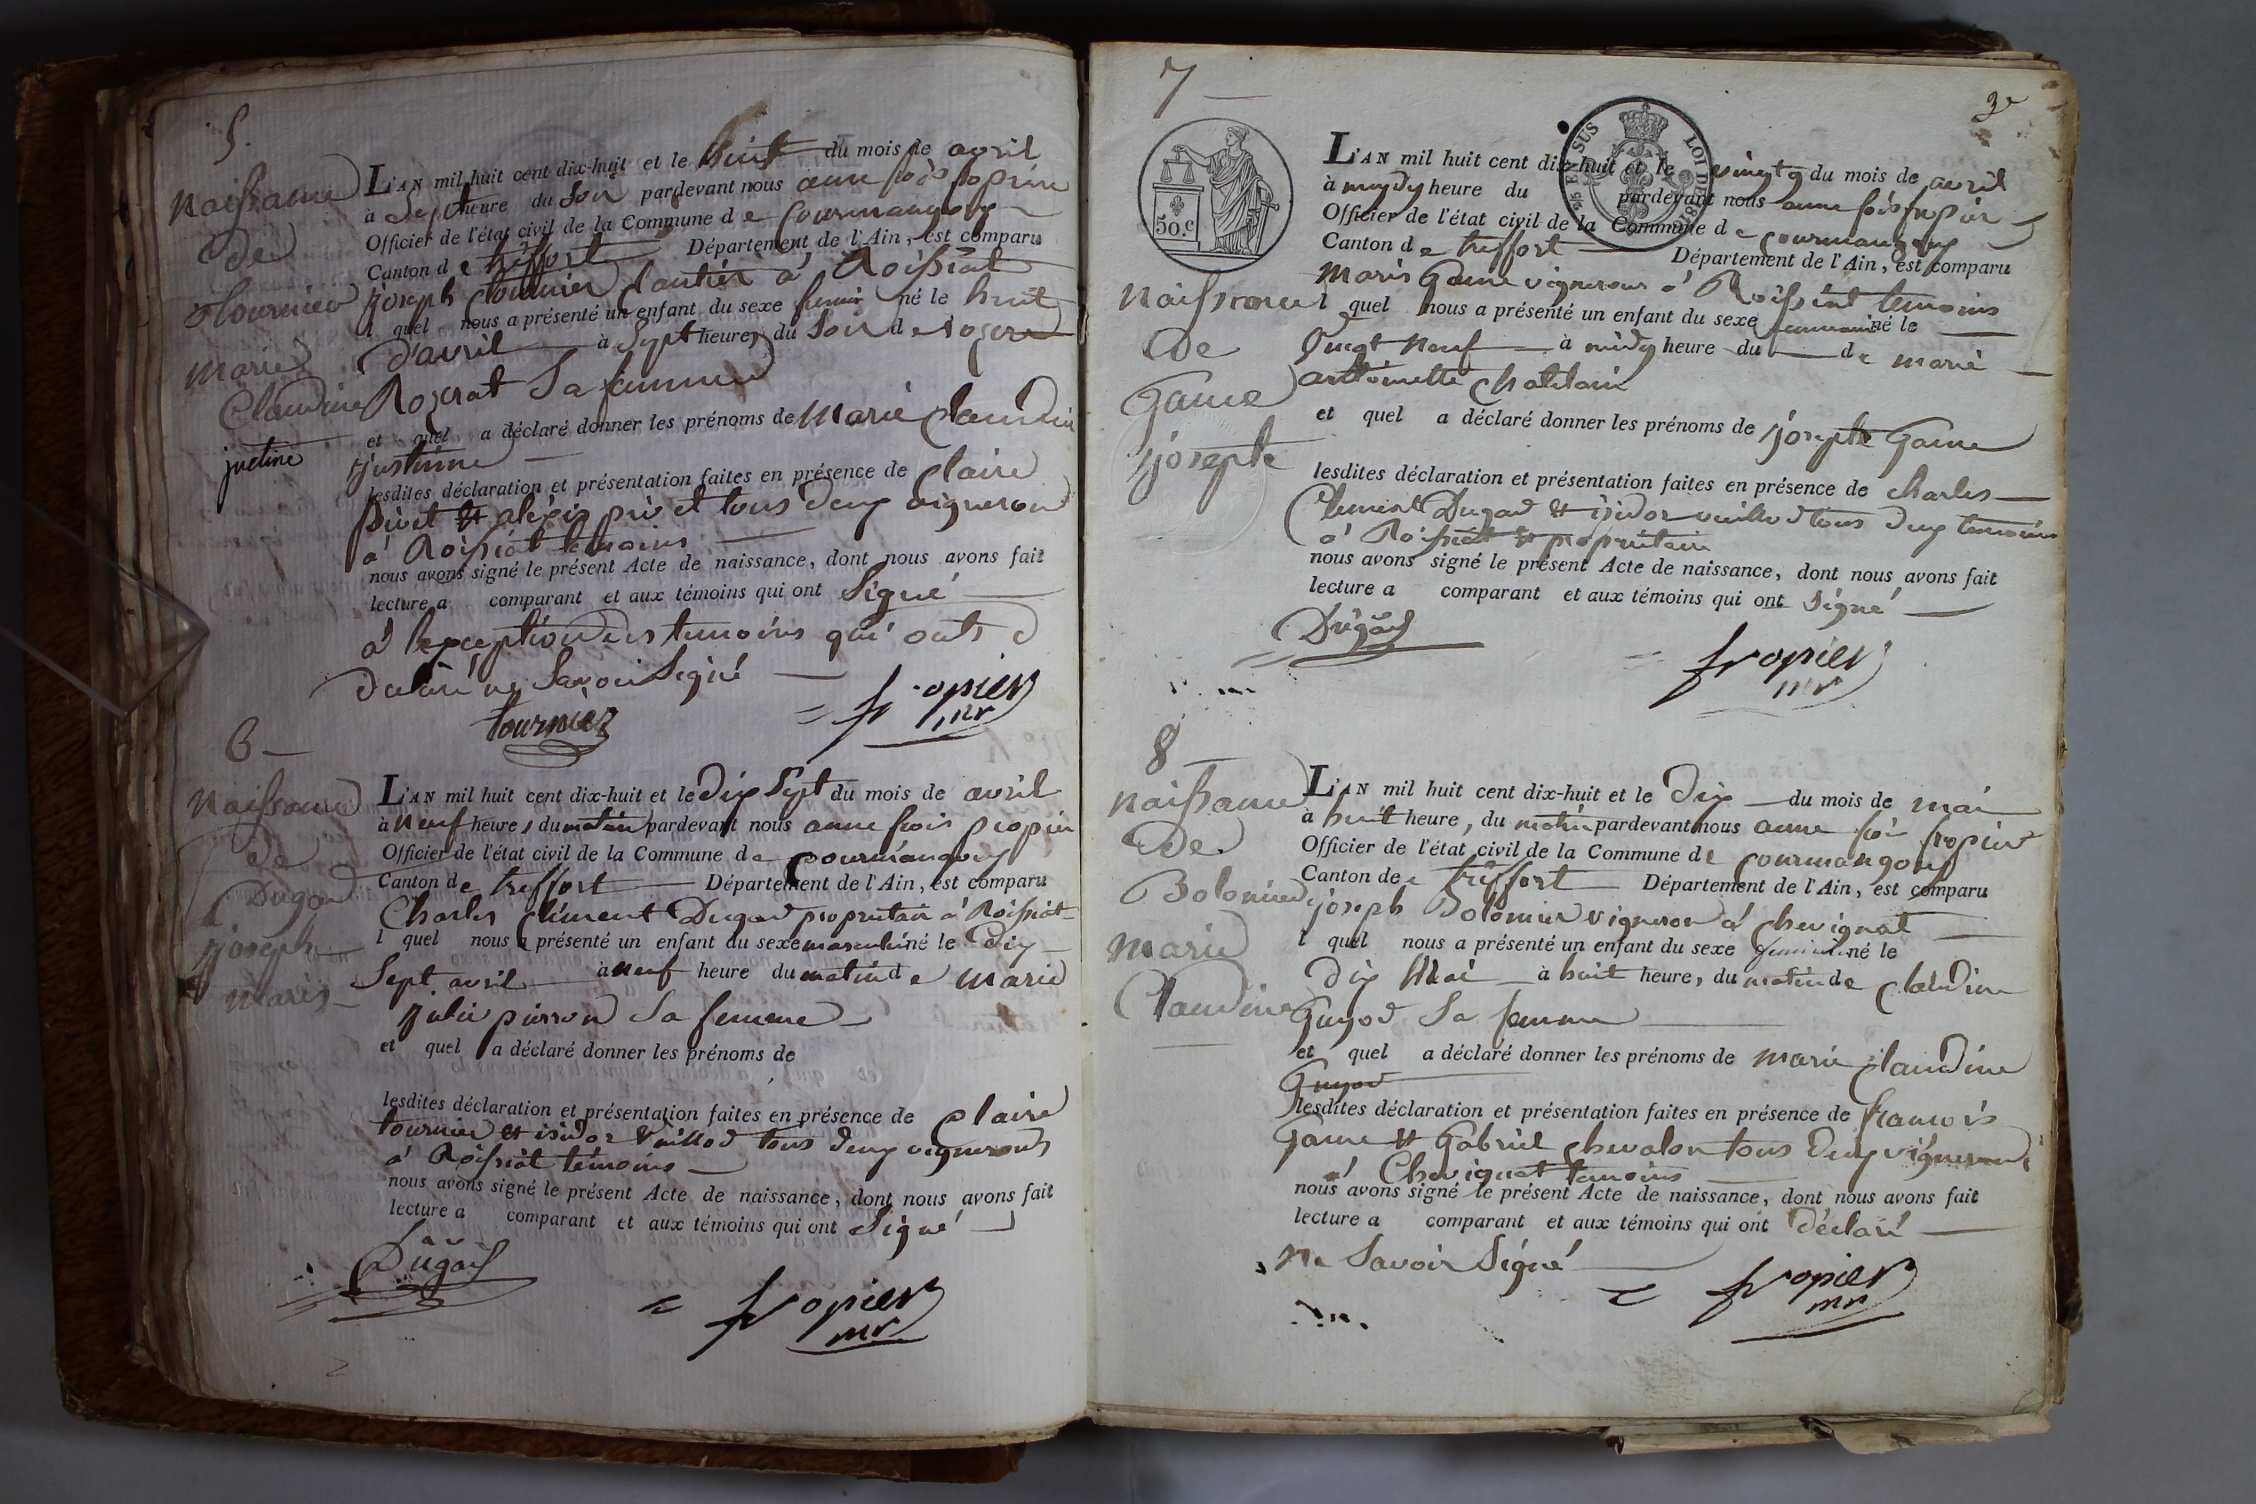 5.
naissance
de
tournier
marie
Claudine
justine
L'AN mil huit cent dix-huit et le huit du mois de avril
à Sept heure du Soir pardevant nous anne fois fropier
Officier de l'état civil de la Commune d e Courmangoux
Canton d e treffort Département de l'Ain, est comparu
joseph tournier à Roissiat
l quel nous a présenté un enfant du sexe femin né le huit
d'avril à Sept heures du Soir d e
Rozerat Sa femme
et quel a déclaré donner les prénoms de Marie Claudine
justinne
lesdites déclaration et présentation faites en présence de Claire
pivet et alexis pivet tous deux vigneron
à Roissiat temoins
nous avons signé le présent Acte de naissance, dont nous avons fait
lecture a comparant et aux témoins qui ont Signé
à lexception des temoins qui onts d
declaré ne Savoir Signé
tournier
fropier
mr
6
naissance
de
Dugad
joseph
maris
L'AN mil huit cent dix-huit et le dix Sept du mois de avril
à neuf heure, du matin pardevant nous anne fois fropier
Officier de l'état civil de la Commune d e Courmangoux
Canton d e treffort Département de l'Ain, est comparu
Charles Clement Dugad propriétair à Roissiat
l quel nous a présenté un enfant du sexe masculin né le dix
Sept avril à neuf heure du matin d e marie
julie pirron Sa femme
et quel a déclaré donner les prénoms de
lesdites déclaration et présentation faites en présence de Claire
tournier et isidor vuillod tous deux vignerons
à Roissiat témoins
nous avons signé le présent Acte de naissance, dont nous avons fait
lecture a comparant et aux témoins qui ont Signé
Dugad
fropier
mr
7
3e
25 EN SUS
LOI DE
50.c
naissance
de
Game
joseph
L'AN mil huit cent dix-huit et le vingt 9 du mois de avril
à mydy heure du pardevant nous anne fois fropier
Officier de l'état civil de la Commune d e Courmangoux
Canton d e treffort Département de l'Ain, est comparu
Maris Game vigneron à Roissiat temoins
l quel nous a présenté un enfant du sexe né le
Vingt neuf à midy heure du d e marie
antoinette Chatelain
et quel a déclaré donner les prénoms de joseph Game
lesdites déclaration et présentation faites en présence de Charles
Clement Dugad et isidor vuillod tous deux temoins
à Roissiat et propriétair
nous avons signé le présent Acte de naissance, dont nous avons fait
lecture a comparant et aux témoins qui ont signé
Dugad
fropier
mr
8
naissance
de
Bolomier
marie
Claudine
L'AN mil huit cent dix-huit et le dix du mois de mai
à huit heure, du matin pardevant nous anne foi fropier
Officier de l'état civil de la Commune d e Courmangoux
Canton de e treffort Département de l'Ain, est comparu
joseph Bolomier vigneron à chevignat
l quel nous a présenté un enfant du sexe feminin né le
dix Mai à huit heure, du matin d e Claudine
Guyod Sa femme
et quel a déclaré donner les prénoms de marie Claudine
Guyod
lesdites déclaration et présentation faites en présence de francois
Game et Gabriel chevalon tous deux vignerons
à Chevignat temoins
nous avons signé le présent Acte de naissance, dont nous avons fait
lecture a comparant et aux témoins qui ont déclaré
ne Savoir Signé
fropier
mr